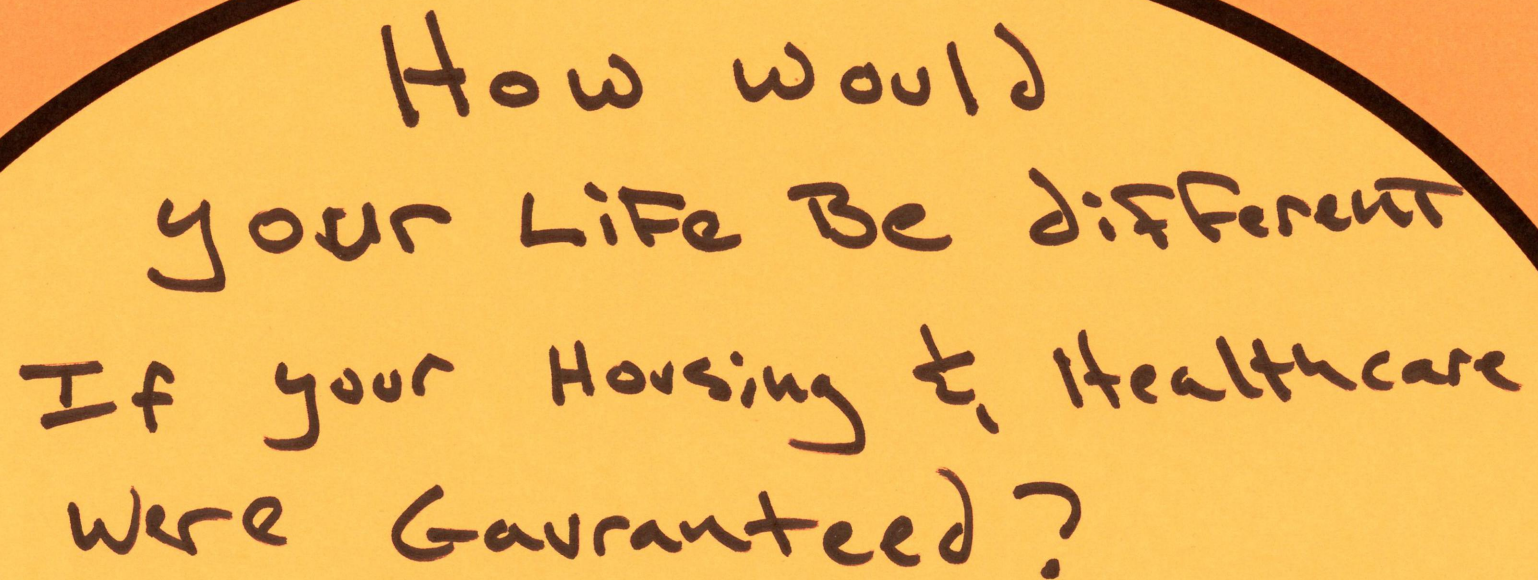 How would
your LiFe Be different
If your Housing & Healthcare
were Gauranteed?